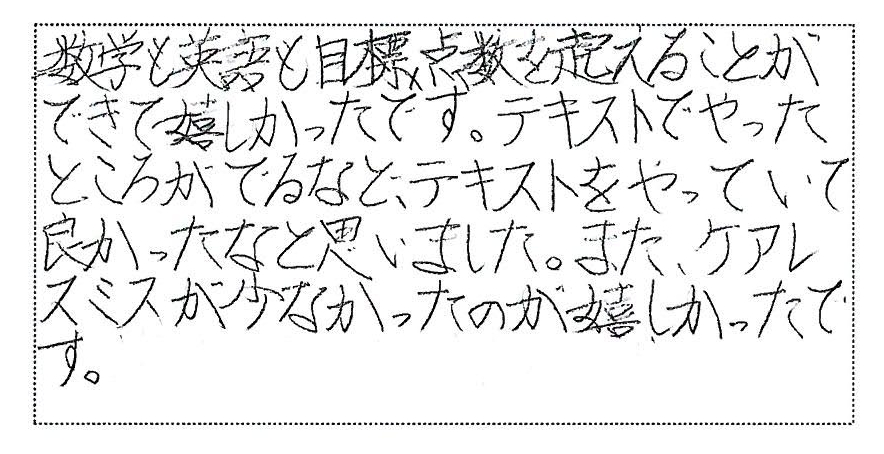 数学も英語も目標点数を超えることが
できて嬉しかったです。テキストでやった
ところがでるなど、テキストをやっていて
良かったなと思いました。また、ケアレ
スミスが少なかったのが嬉しかったで
す。